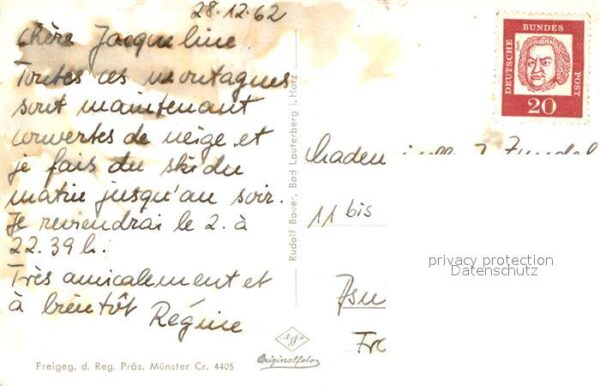 28.12.62
Chère Jacqueline
Toutes ces montagnes
sont maintenant
couvertes de neige et
je fais du ski du
matin jusqu'au soir.
Je reviendrai le 2. à
22.39 h.
Très amicalement et
à bientôt Régine
Freigeg. d. Reg. Präs. Münster Cr. 4405
Rudolf Bauer, Bad Lauterberg i. Harz
Agfa
Originalfoto
DEUTSCHE
BUNDES
POST
20
11 bis
privacy protection
Datenschutz